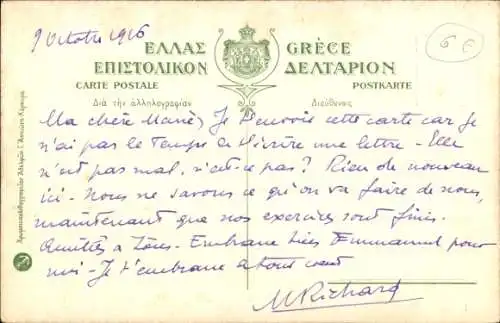 9 Octobre 1916
6 €
ΕΛΛΑΣ GRÈCE
ΕΠΙΣΤΟΛΙΚΟΝ ΔΕΛΤΑΡΙΟΝ
CARTE POSTALE POSTKARTE
Διὰ τὴν ἀλληλογραφίαν Διεύθυνσις
Ma chère Marie, Je t'envoie cette carte car je
n'ai pas le temps d'écrire une lettre - Elle
n'est pas mal, n'est-ce pas? Rien de nouveau
ici - Nous ne savons ce qu'on va faire de nous,
maintenant que nos exercices sont finis.
Amitiés à tous. Embrasse bien Emmanuel pour
moi - Je t'embrasse de tout cœur
M Richard